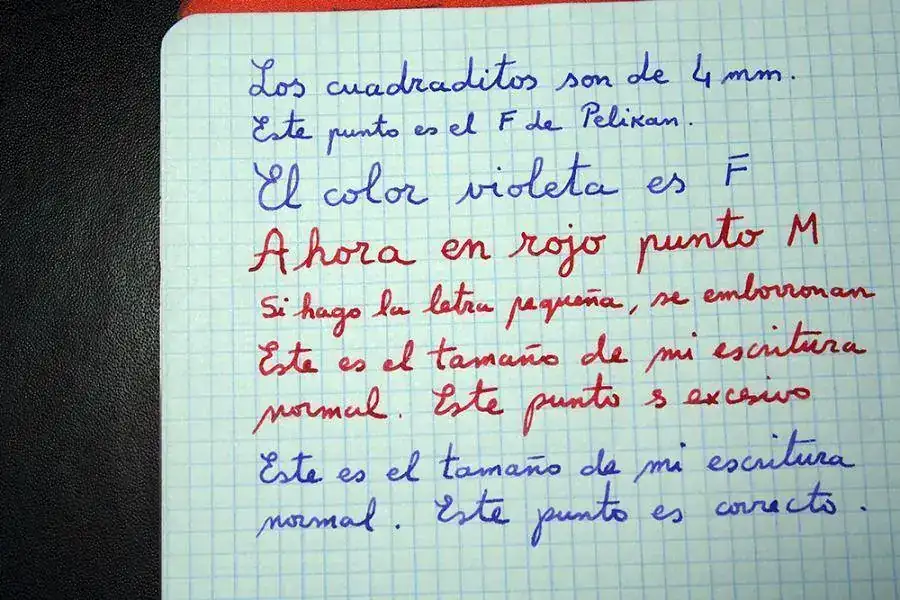 Los cuadraditos son de 4 mm.
Este punto es el F de Pelikan.
El color violeta es F
Ahora en rojo punto M
Si hago la letra pequeña, se emborronan
Este es el tamaño de mi escritura
normal. Este punto s excesivo
Este es el tamaño de mi escritura
normal. Este punto es correcto.